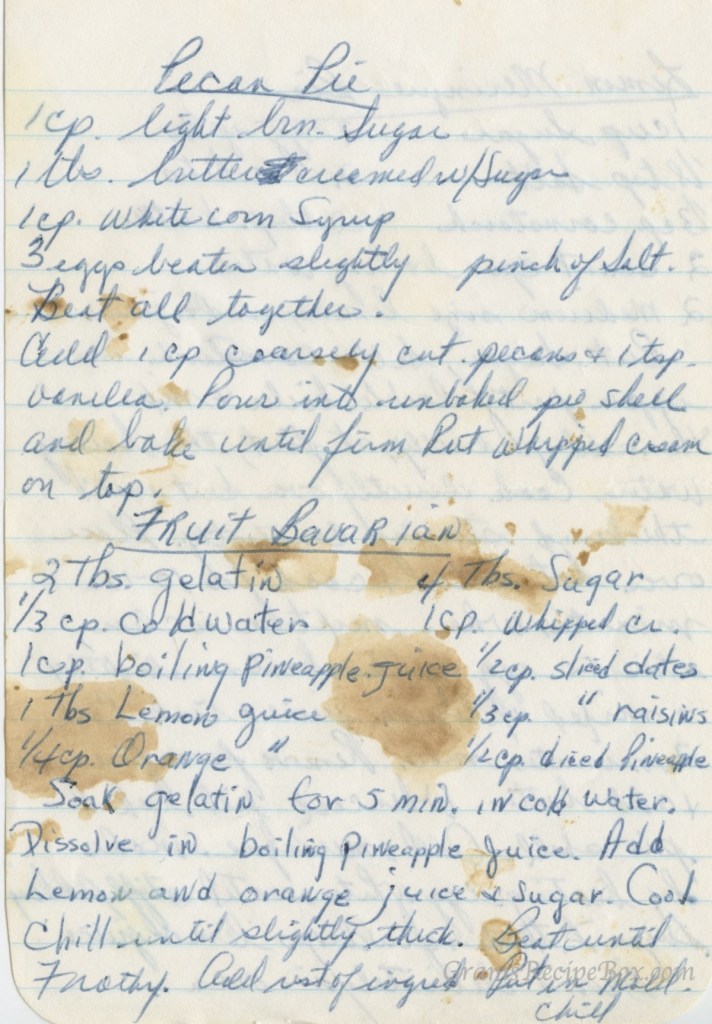 Pecan Pie
1 cp. light brn. Sugar
1 tbs. butter creamed w/Sugar
1 cp. White corn Syrup
3 eggs beaten slightly pinch of Salt.
Beat all together.
Add 1 cp coarsely cut pecans + 1 tsp.
vanilla. Pour into unbaked pie shell
and bake until firm Put whipped cream
on top.
FRUIT BAVARIAN
2 Tbs. gelatin 4 Tbs. Sugar
1/3 cp. Cold water 1 cp. whipped cr.
1 cp. boiling Pineapple juice 1/2 cp. sliced dates
1 Tbs Lemon juice 1/3 cp. " raisins
1/4 cp. Orange " 1/2 cp. diced Pineapple
Soak gelatin for 5 min. in cold water.
Dissolve in boiling Pineapple juice. Add
Lemon and orange juice & sugar. Cool
Chill until slightly thick. Beat until
Frothy. Add rest of ingred Put in Mold.
Chill
GransRecipeBox.com